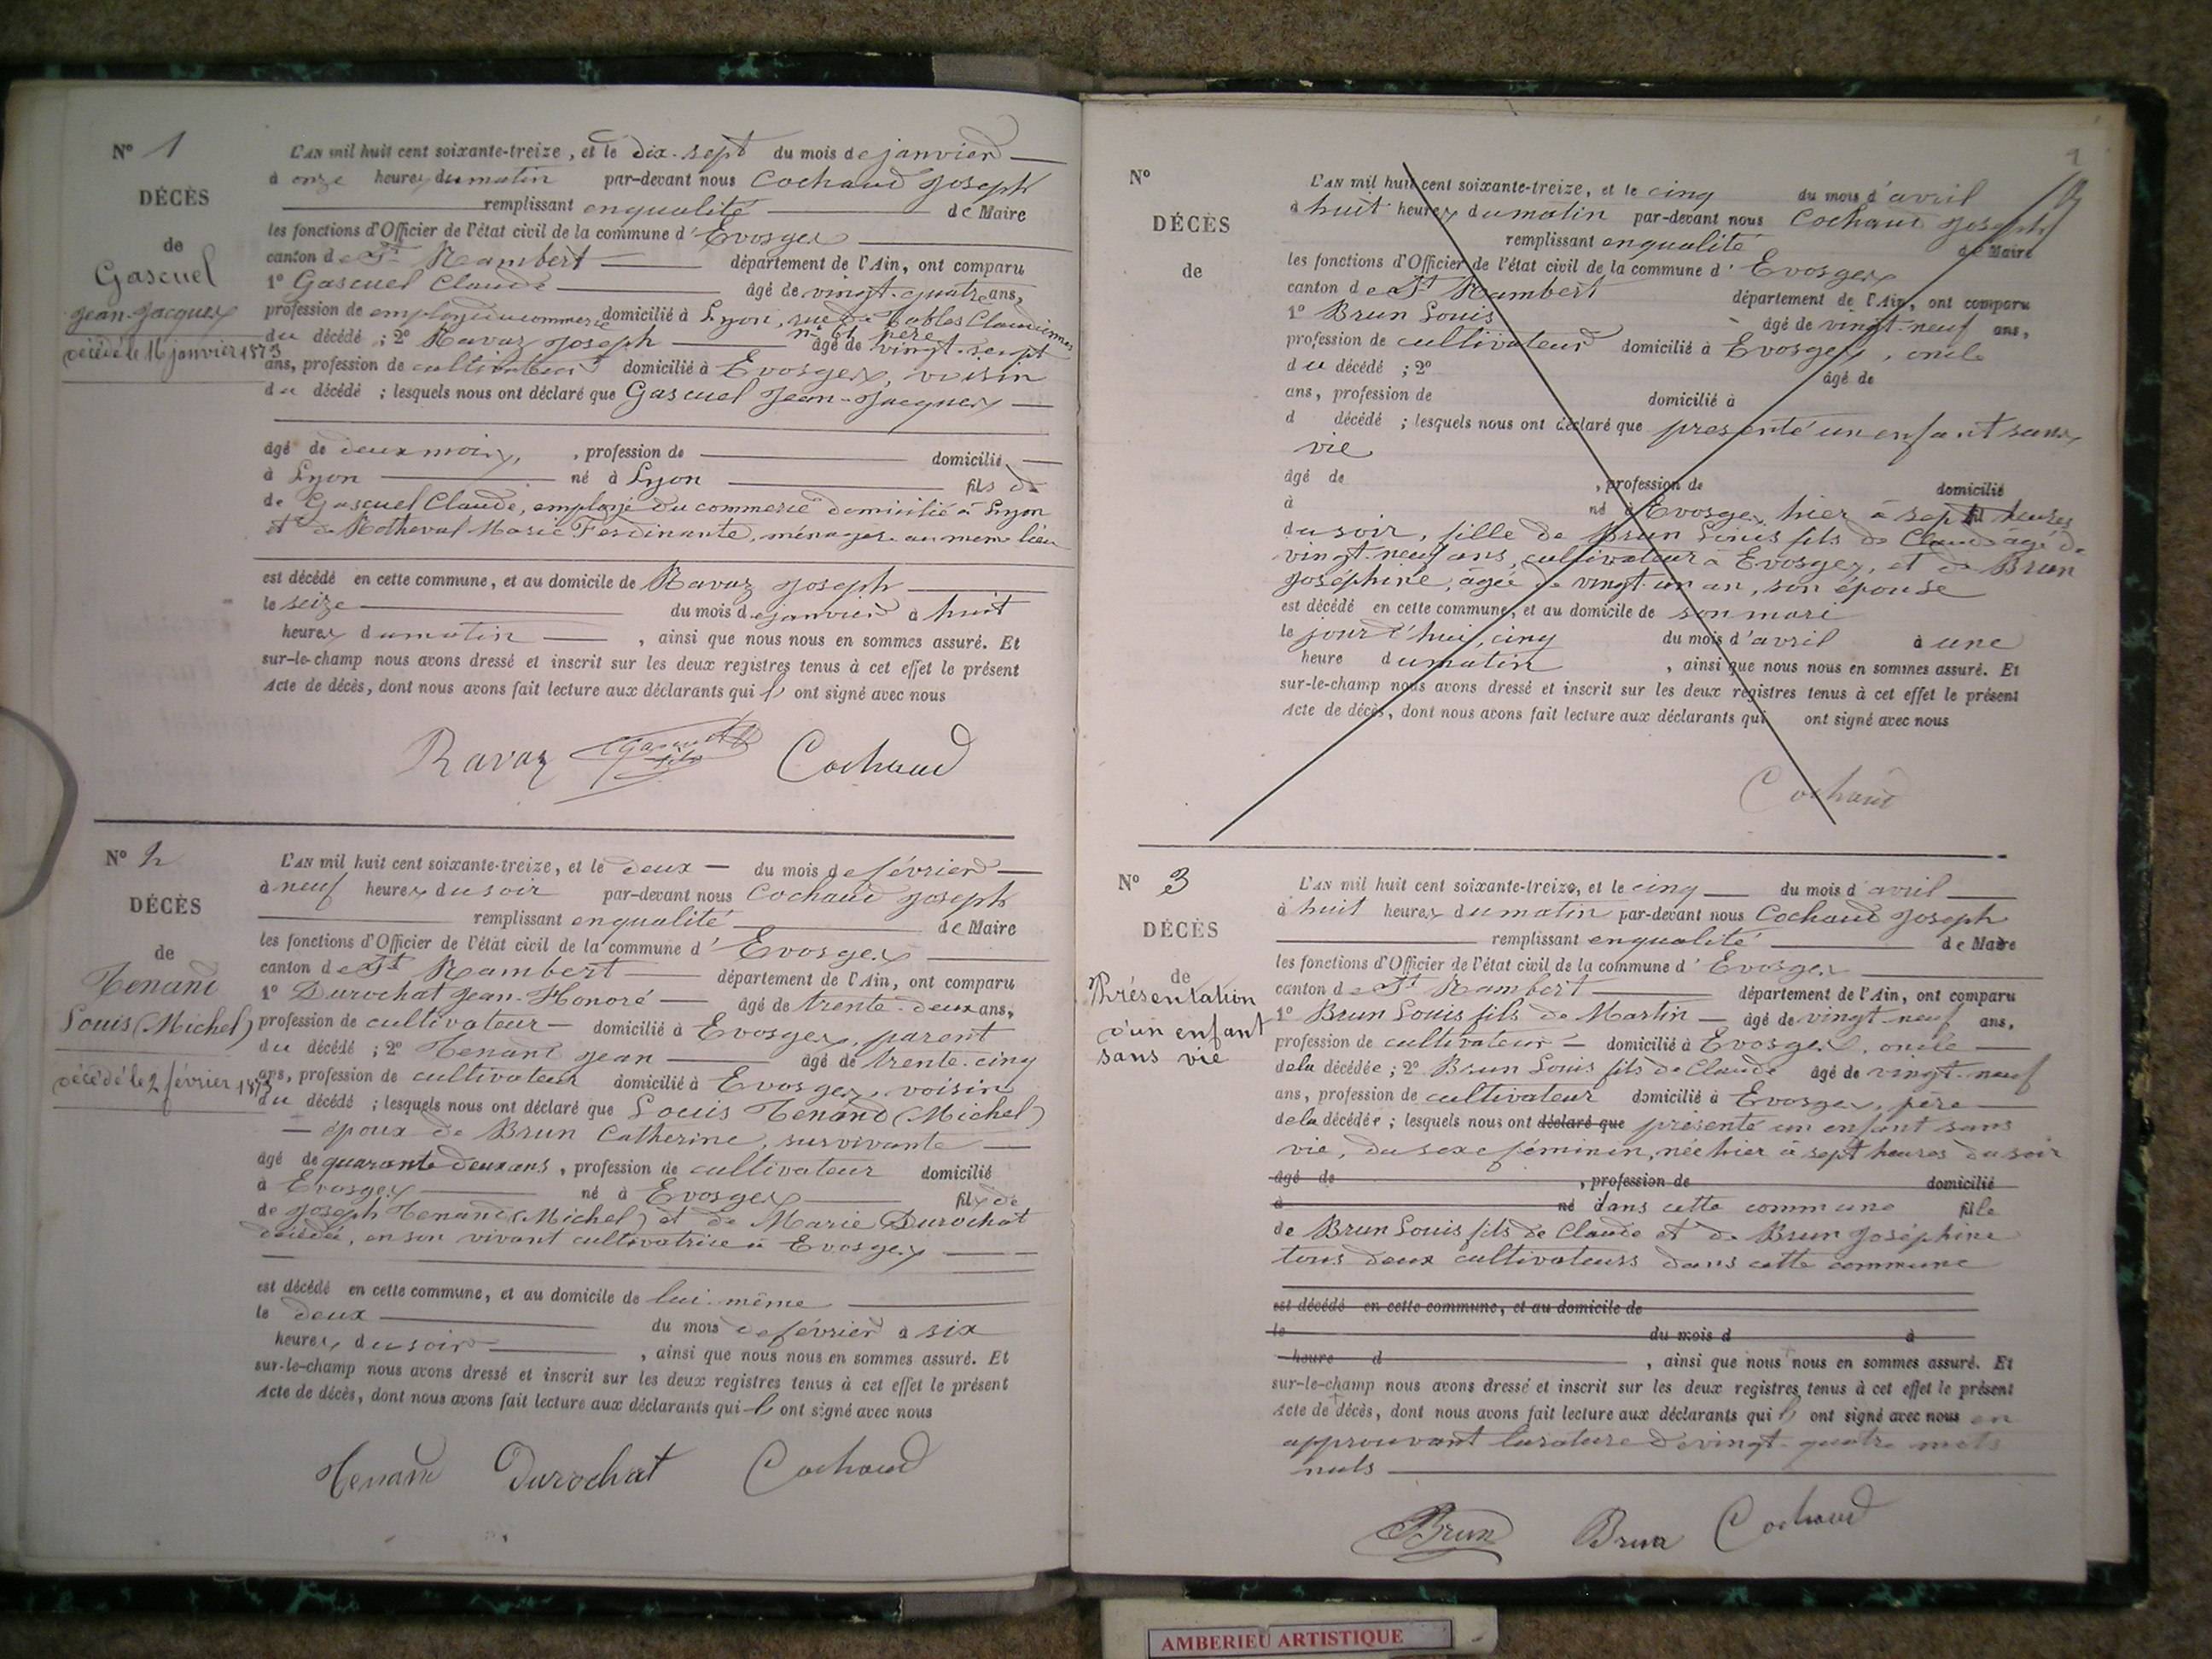 N° 1
DÉCÈS
de
Gascuel
Jean-Jacques
décédé le 16 janvier 1873
L'AN mil huit cent soixante-treize, et le dix-sept du mois de janvier
à onze heures du matin par-devant nous Cochaud Joseph
remplissant en qualité de Maire
les fonctions d'Officier de l'état civil de la commune d'Evosges
canton de St Rambert département de l'Ain, ont comparu
1° Gascuel Claude âgé de vingt-quatre ans,
profession de employé du commerce domicilié à Lyon, rue de nobles Claudines n° 61 père
du décédé ; 2° Ravaz Joseph âgé de vingt-sept
ans, profession de cultivateur domicilié à Evosges, voisin
du décédé ; lesquels nous ont déclaré que Gascuel Jean-Jacques
âgé de deux mois, , profession de domicilié
à Lyon né à Lyon fils de
de Gascuel Claude, employé du commerce domicilié à Lyon
et de Rotheval Marie Ferdinante, ménagère au meme lieu
est décédé en cette commune, et au domicile de Ravaz Joseph
le seize du mois de janvier à huit
heures du matin , ainsi que nous nous en sommes assuré. Et
sur-le-champ nous avons dressé et inscrit sur les deux registres tenus à cet effet le présent
Acte de décès, dont nous avons fait lecture aux déclarants qui l' ont signé avec nous
Ravaz Gascuel fils Cochaud
N° 2
DÉCÈS
de
Tenand
Louis (Michel)
décédé le 2 février 1873
L'AN mil huit cent soixante-treize, et le deux du mois de février
à neuf heures du soir par-devant nous Cochaud Joseph
remplissant en qualité de Maire
les fonctions d'Officier de l'état civil de la commune d'Evosges
canton de St Rambert département de l'Ain, ont comparu
1° Durochat Jean-Honoré âgé de trente-deux ans,
profession de cultivateur domicilié à Evosges, parent
du décédé ; 2° Tenand Jean âgé de trente-cinq
ans, profession de cultivateur domicilié à Evosges, voisin
du décédé ; lesquels nous ont déclaré que Louis Tenand (Michel)
époux de Brun Catherine, survivante
âgé de quarante deux ans, profession de cultivateur domicilié
à Evosges né à Evosges fils de
de Joseph Tenand (Michel) et de Marie Durochat
décédée, en son vivant cultivatrice à Evosges
est décédé en cette commune, et au domicile de lui-même
le deux du mois de février à six
heures du soir , ainsi que nous nous en sommes assuré. Et
sur-le-champ nous avons dressé et inscrit sur les deux registres tenus à cet effet le présent
Acte de décès, dont nous avons fait lecture aux déclarants qui l' ont signé avec nous
Tenand Durochat Cochaud
N°
DÉCÈS
de
L'AN mil huit cent soixante-treize, et le cinq du mois d'avril
à huit heures du matin par-devant nous Cochaud Joseph
remplissant en qualité de Maire
les fonctions d'Officier de l'état civil de la commune d'Evosges
canton de St Rambert département de l'Ain, ont comparu
1° Brun Louis âgé de vingt-neuf ans,
profession de cultivateur domicilié à Evosges, oncle
du décédé ; 2° âgé de
ans, profession de domicilié à
d décédé ; lesquels nous ont déclaré que presenté un enfant sans
vie
âgé de , profession de domicilié
à né à Evosges, hier à sept heures
du soir, fille de Brun Louis fils de Claude agé de
vingt-neuf ans, cultivateur à Evosges, et de Brun
Joséphine, âgée de vingt un an, son épouse
est décédé en cette commune, et au domicile de son mari
le jourd'hui, cinq du mois d'avril à une
heure du matin , ainsi que nous nous en sommes assuré. Et
sur-le-champ nous avons dressé et inscrit sur les deux registres tenus à cet effet le présent
Acte de décès, dont nous avons fait lecture aux déclarants qui ont signé avec nous
Cochaud
N° 3
DÉCÈS
de
Présentation
d'un enfant
sans vie
L'AN mil huit cent soixante-treize, et le cinq du mois d'avril
à huit heures du matin par-devant nous Cochaud Joseph
remplissant en qualité de Maire
les fonctions d'Officier de l'état civil de la commune d'Evosges
canton de St Rambert département de l'Ain, ont comparu
1° Brun Louis fils de Martin âgé de vingt-neuf ans,
profession de cultivateur domicilié à Evosges, oncle
de la décédée ; 2° Brun Louis fils de Claude âgé de vingt-neuf
ans, profession de cultivateur domicilié à Evosges, père
de la décédée ; lesquels nous ont déclaré que présenté un enfant sans
vie, du sexe féminin, née hier à sept heures du soir
âgé de , profession de domicilié
à né dans cette commune fille
de Brun Louis fils de Claude et de Brun Joséphine
tous deux cultivateurs dans cette commune
est décédé en cette commune, et au domicile de
le du mois d à
heure d , ainsi que nous nous en sommes assuré. Et
sur-le-champ nous avons dressé et inscrit sur les deux registres tenus à cet effet le présent
Acte de décès, dont nous avons fait lecture aux déclarants qui l' ont signé avec nous en
approuvant la rature de vingt-quatre mots
nuls
Brun Brun Cochaud
AMBERIEU ARTISTIQUE